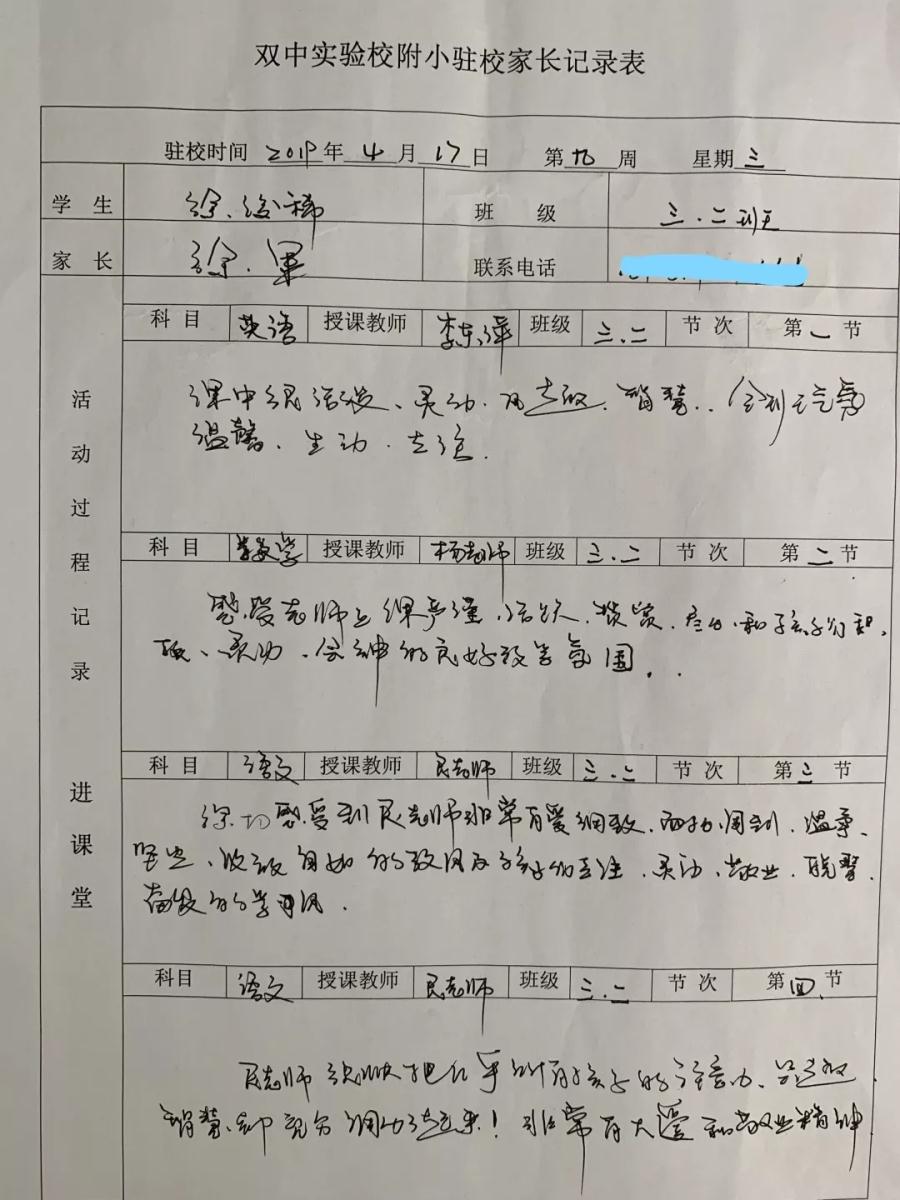 双中实验校附小驻校家长记录表
驻校时间 2019年 4 月 17 日 第 九 周 星期 三
学 生 徐 稀 班 级 三.二班
家 长 徐.军 联系电话
活动过程记录 进课堂
科 目 英语 授课教师 李东萍 班级 三.二 节 次 第 一 节
课中很活泼、灵动.有趣.智慧..
温馨、生动.专注.
科 目 数学 授课教师 杨老师 班级 三.二 节 次 第 二 节
感受老师上课严谨,活跃.和孩子们积
极、灵动、的良好教学氛围..
科 目 语文 授课教师 老师 班级 三.二 节 次 第 三 节
感受到老师非常有爱细致.周到.温柔、
坚定、收放自如的教风及孩子们专注、灵动、敬业.聪慧.
奋发的学习风.
科目 语文 授课教师 老师 班级 三.二 节 次 第 四 节
老师 所有孩子的注意力、
智慧、调动起来!非常有大爱和敬业精神